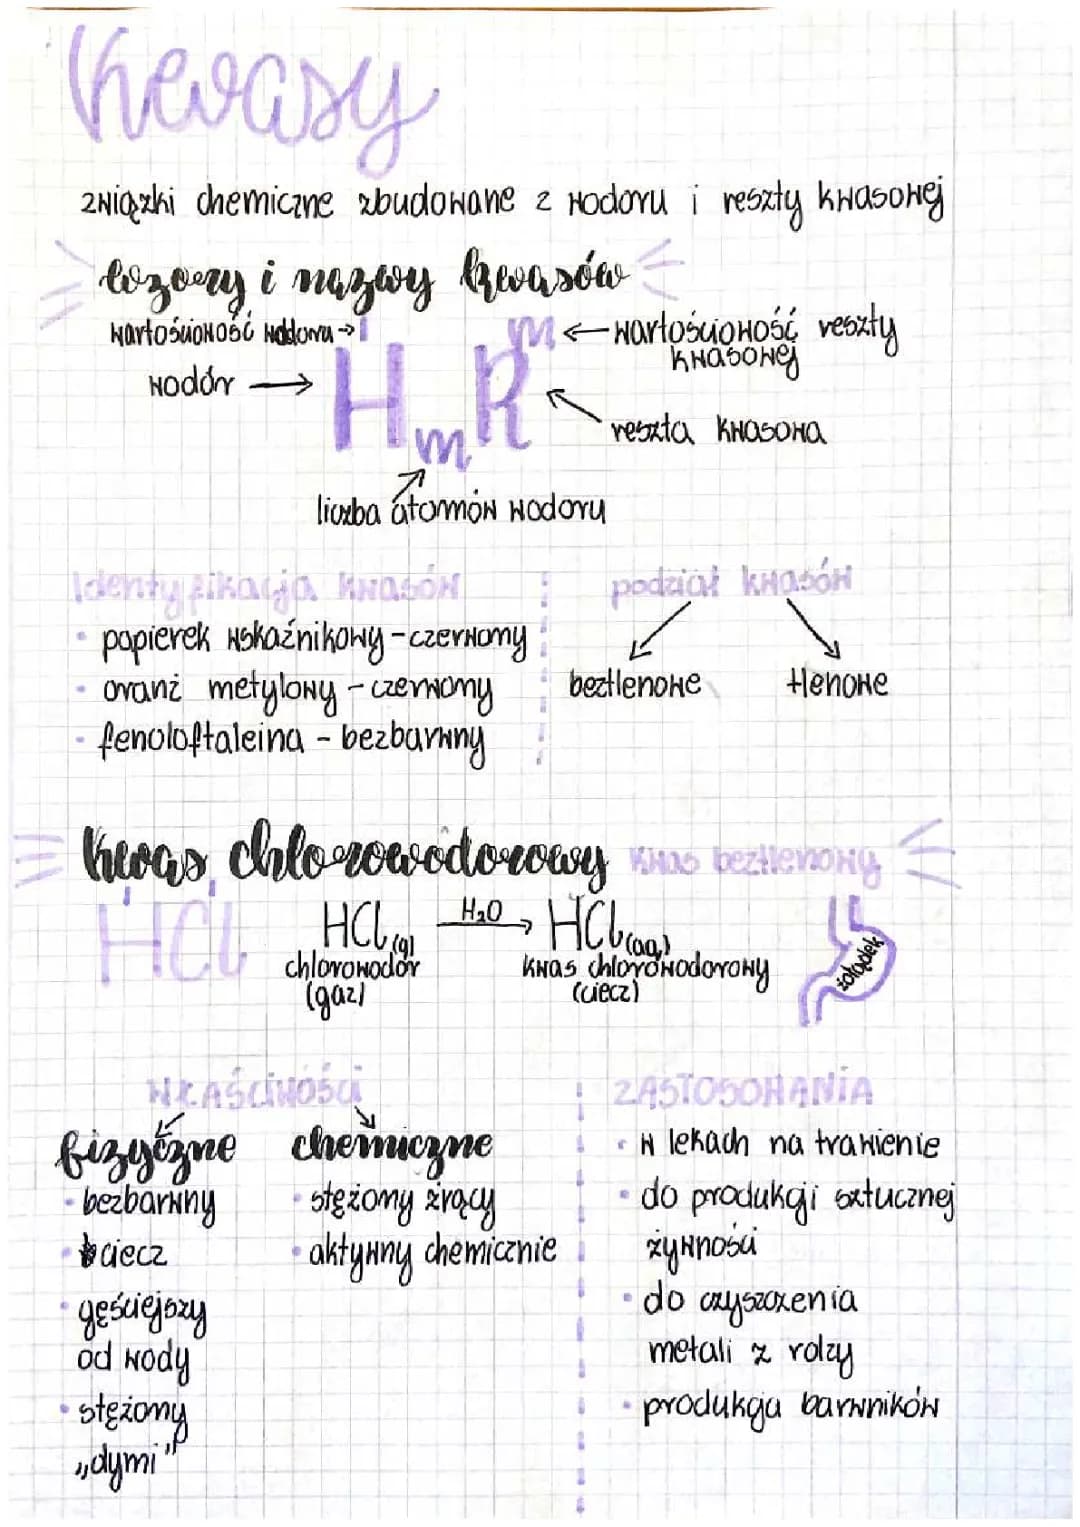 Kwasy
związki chemiczne zbudowane z wodoru i reszty kwasowej
wzory i nazwy kwasów
wartościowość wodoru → I
m ← wartościowość reszty
kwasowej
wodór → HmR
reszta kwasowa
liczba atomów wodoru
Identyfikacja kwasów
• papierek wskaźnikowy - czerwony
• oranż metylowy - czerwony
• fenoloftaleina - bezbarwny
podział kwasów
beztlenowe
tlenowe
Kwas chlorowodorowy kwas beztlenowy
HCl
HCl(g) H₂O→ HCl(aq)
chlorowodór
(gaz)
kwas chlorowodorowy
(ciecz)
żołądek
WŁAŚCIWOŚCI
fizyczne
• bezbarwny
• ciecz
• gęściejszy
od wody
• stężony
„dymi"
chemiczne
• stężony żrący
• aktywny chemicznie
ZASTOSOWANIA
• w lekach na trawienie
• do produkcji sztucznej
żywności
• do czyszczenia
metali z rdzy
• produkcja barwników